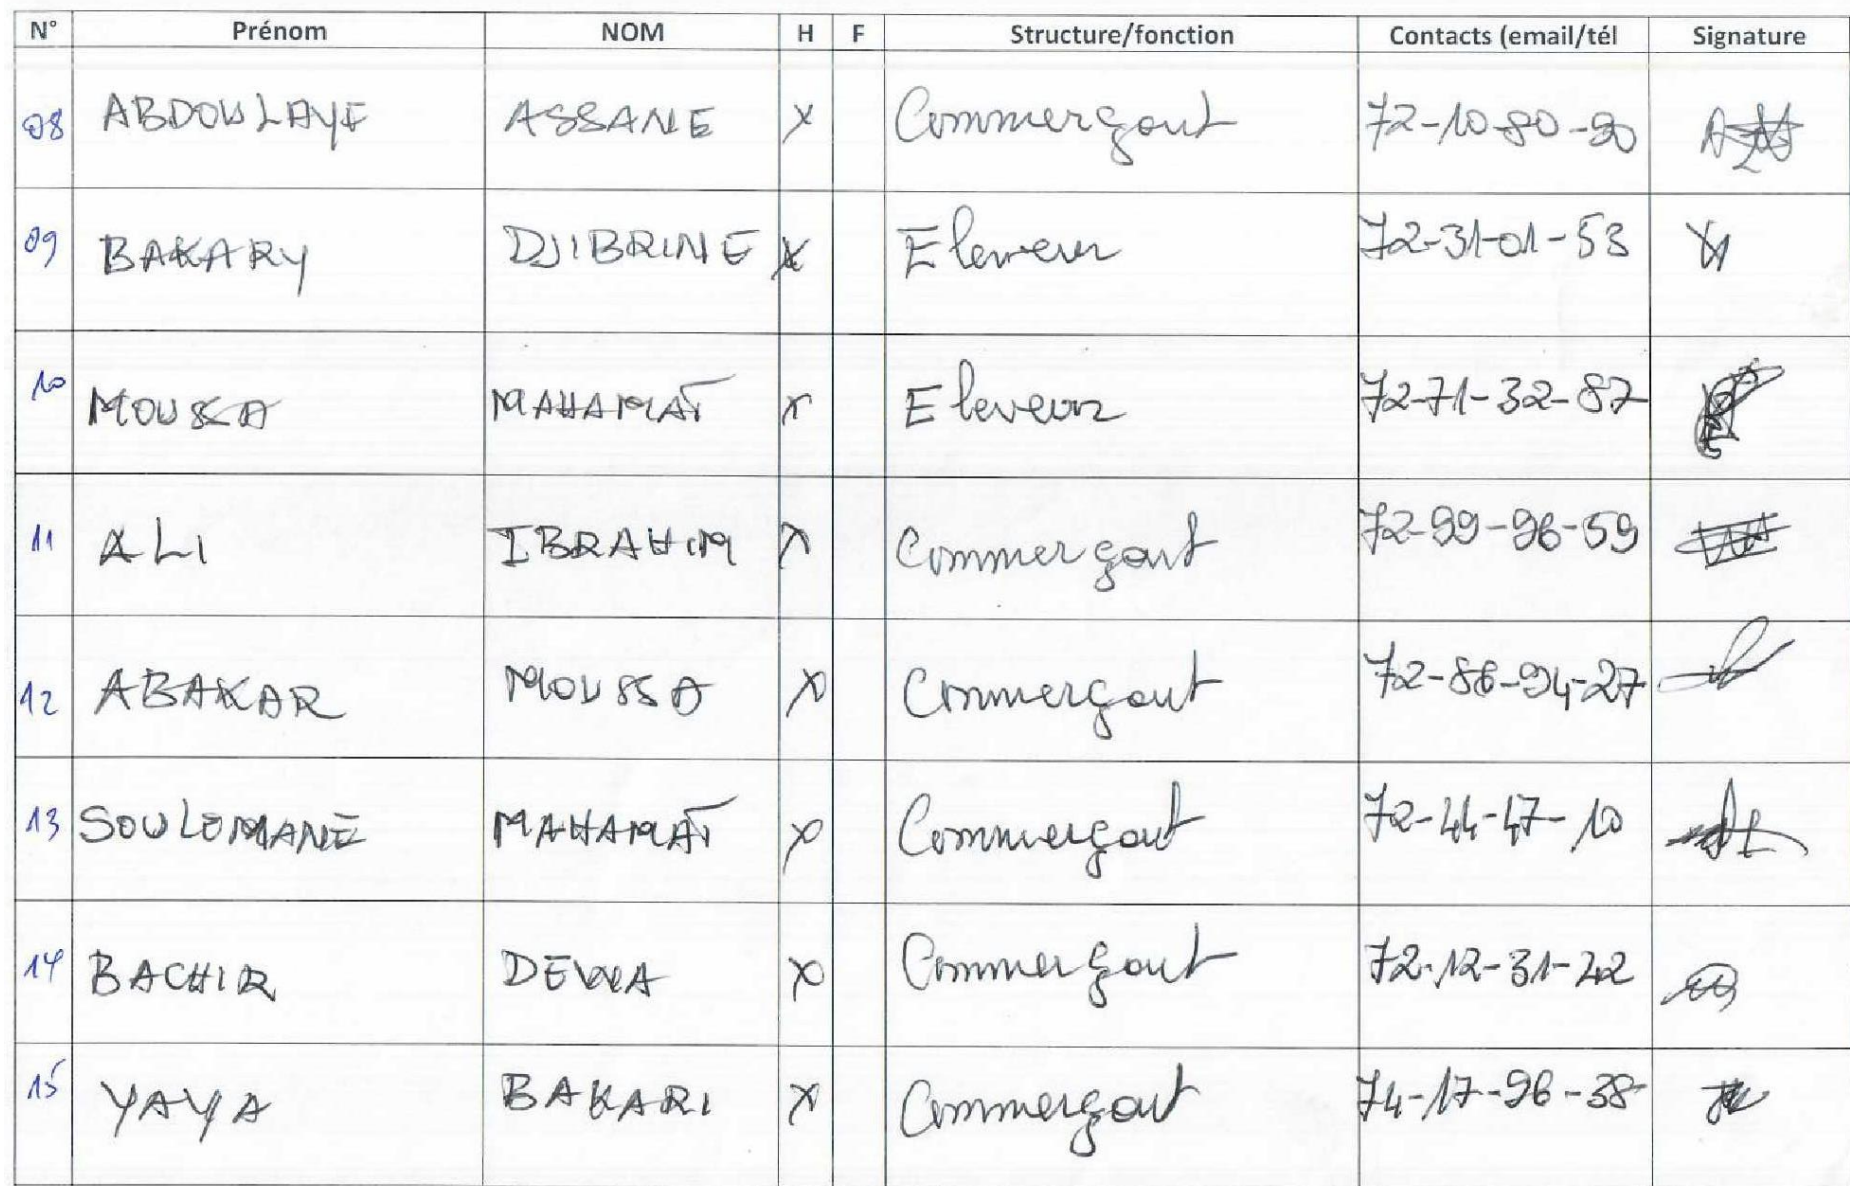 N° Prénom NOM H F Structure/fonction Contacts (email/tél Signature
08 ABDOULAYE ASSANE X Commerçant 72-10-80-90
09 BAKARY DJIBRINE X Eleveur 72-31-01-53
10 MOUSSA MAHAMAT X Eleveur 72-71-32-87
11 ALI IBRAHIM X Commerçant 72-99-96-59
12 ABAKAR MOUSSA X Commerçant 72-86-94-27
13 SOULEMANE MAHAMAT X Commerçant 72-44-47-10
14 BACHIR DEWA X Commerçant 72-12-31-22
15 YAYA BAKARI X Commerçant 74-17-96-38